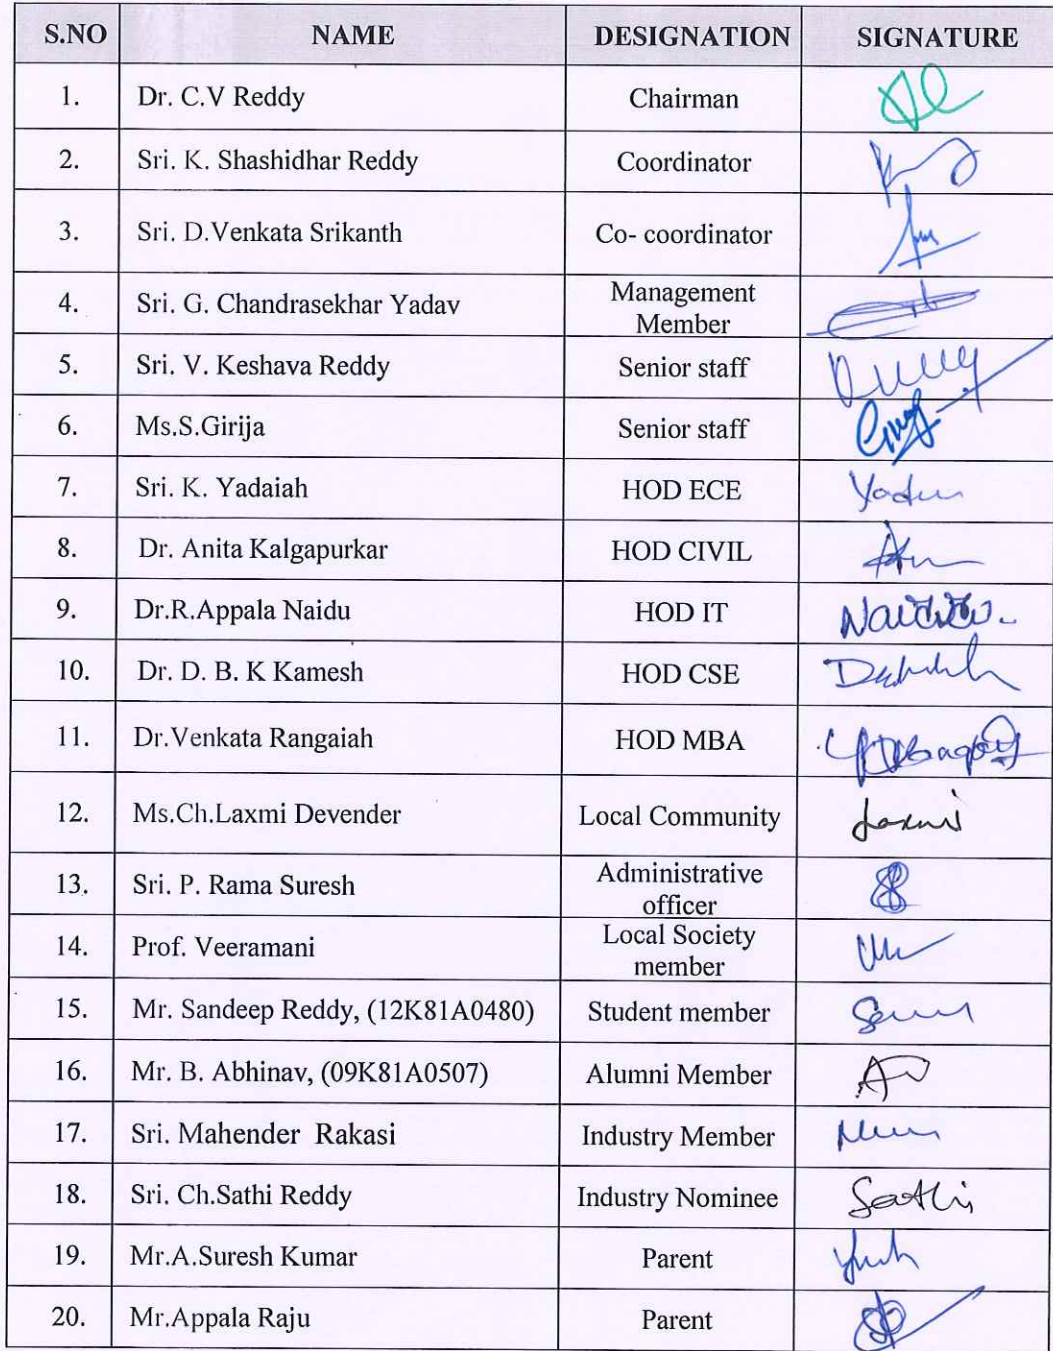 S.NO NAME DESIGNATION SIGNATURE
1. Dr. C.V Reddy Chairman
2. Sri. K. Shashidhar Reddy Coordinator
3. Sri. D.Venkata Srikanth Co- coordinator
4. Sri. G. Chandrasekhar Yadav Management
Member
5. Sri. V. Keshava Reddy Senior staff
6. Ms.S.Girija Senior staff
7. Sri. K. Yadaiah HOD ECE
8. Dr. Anita Kalgapurkar HOD CIVIL
9. Dr.R.Appala Naidu HOD IT
10. Dr. D. B. K Kamesh HOD CSE
11. Dr.Venkata Rangaiah HOD MBA
12. Ms.Ch.Laxmi Devender Local Community Laxmi
13. Sri. P. Rama Suresh Administrative
officer
14. Prof. Veeramani Local Society
member
15. Mr. Sandeep Reddy, (12K81A0480) Student member
16. Mr. B. Abhinav, (09K81A0507) Alumni Member
17. Sri. Mahender Rakasi Industry Member
18. Sri. Ch.Sathi Reddy Industry Nominee Sathi
19. Mr.A.Suresh Kumar Parent
20. Mr.Appala Raju Parent